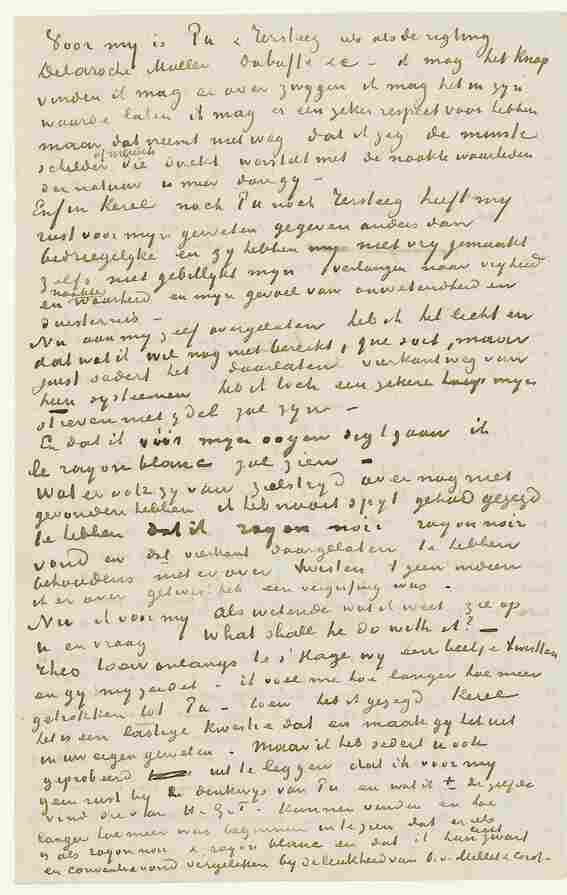 Voor my is Pa & Tersteeg als als de rigting
Delaroche Muller Dubuffe &c - ik mag het knap
vinden ik mag er over zwygen ik mag het in zyn
waarde laten ik mag er een zeker respect voor hebben
maar dat neemt niet weg dat ik zeg de minste
schilder of mensch die direkt worstelt met de naakte waarheden
der natuur is meer dan gy -
Enfin kerel noch Pa noch Tersteeg heeft my
rust voor myn geweten gegeven anders dan
bedriegelyke en zy hebben my niet vry gemaakt
zelfs niet gebillykt myn verlangen naar vryheid
en naakte waarheid en myn gevoel van onwetendheid en
duisternis -
Nu aan my zelf overgelaten heb ik het licht en
dat wat ik wil nog niet bereikt, que soit, maar
juist sedert het daarlaten vierkantweg van
hun systeemen heb ik toch een zekere hoop myn
streven niet ydel zal zyn -
En dat ik vóór myn oogen digt gaan ik
le rayon blanc zal zien -
Wat er ook zy van zielstryd over nog niet
gevonden hebben ik heb nooit spyt gehad gezegd
te hebben dat ik rayon noir rayon noir
vond en dat vierkant daargelaten te hebben
behoudens niet er over twisten 't geen meen
ik er over getwist heb een vergissing was -
Nu ik voor my als wetende wat ik weet zie op
u en vraag What shall he do with it? -
Theo toen onlangs te s'Hage wy een beetje twistten
en gy my zeidet - ik voel me hoe langer hoe meer
getrokken tot Pa - toen heb ik gezegd kerel
het is een lastige kwestie dat en maak gy het uit
in uw eigen geweten - Maar ik heb sedert u ook
geprobeerd uit te leggen dat ik voor my
geen rust by de denkwys van Pa en wat ik ± dezelfde
vind die van H.G.T. kunnen vinden en hoe
langer hoe meer was beginnen in te zien dat er iets
is als rayon noir & rayon blanc en dat ik hun licht zwart
en conventie vond vergeleken by de leukheid van b.v. Millet & Corot -